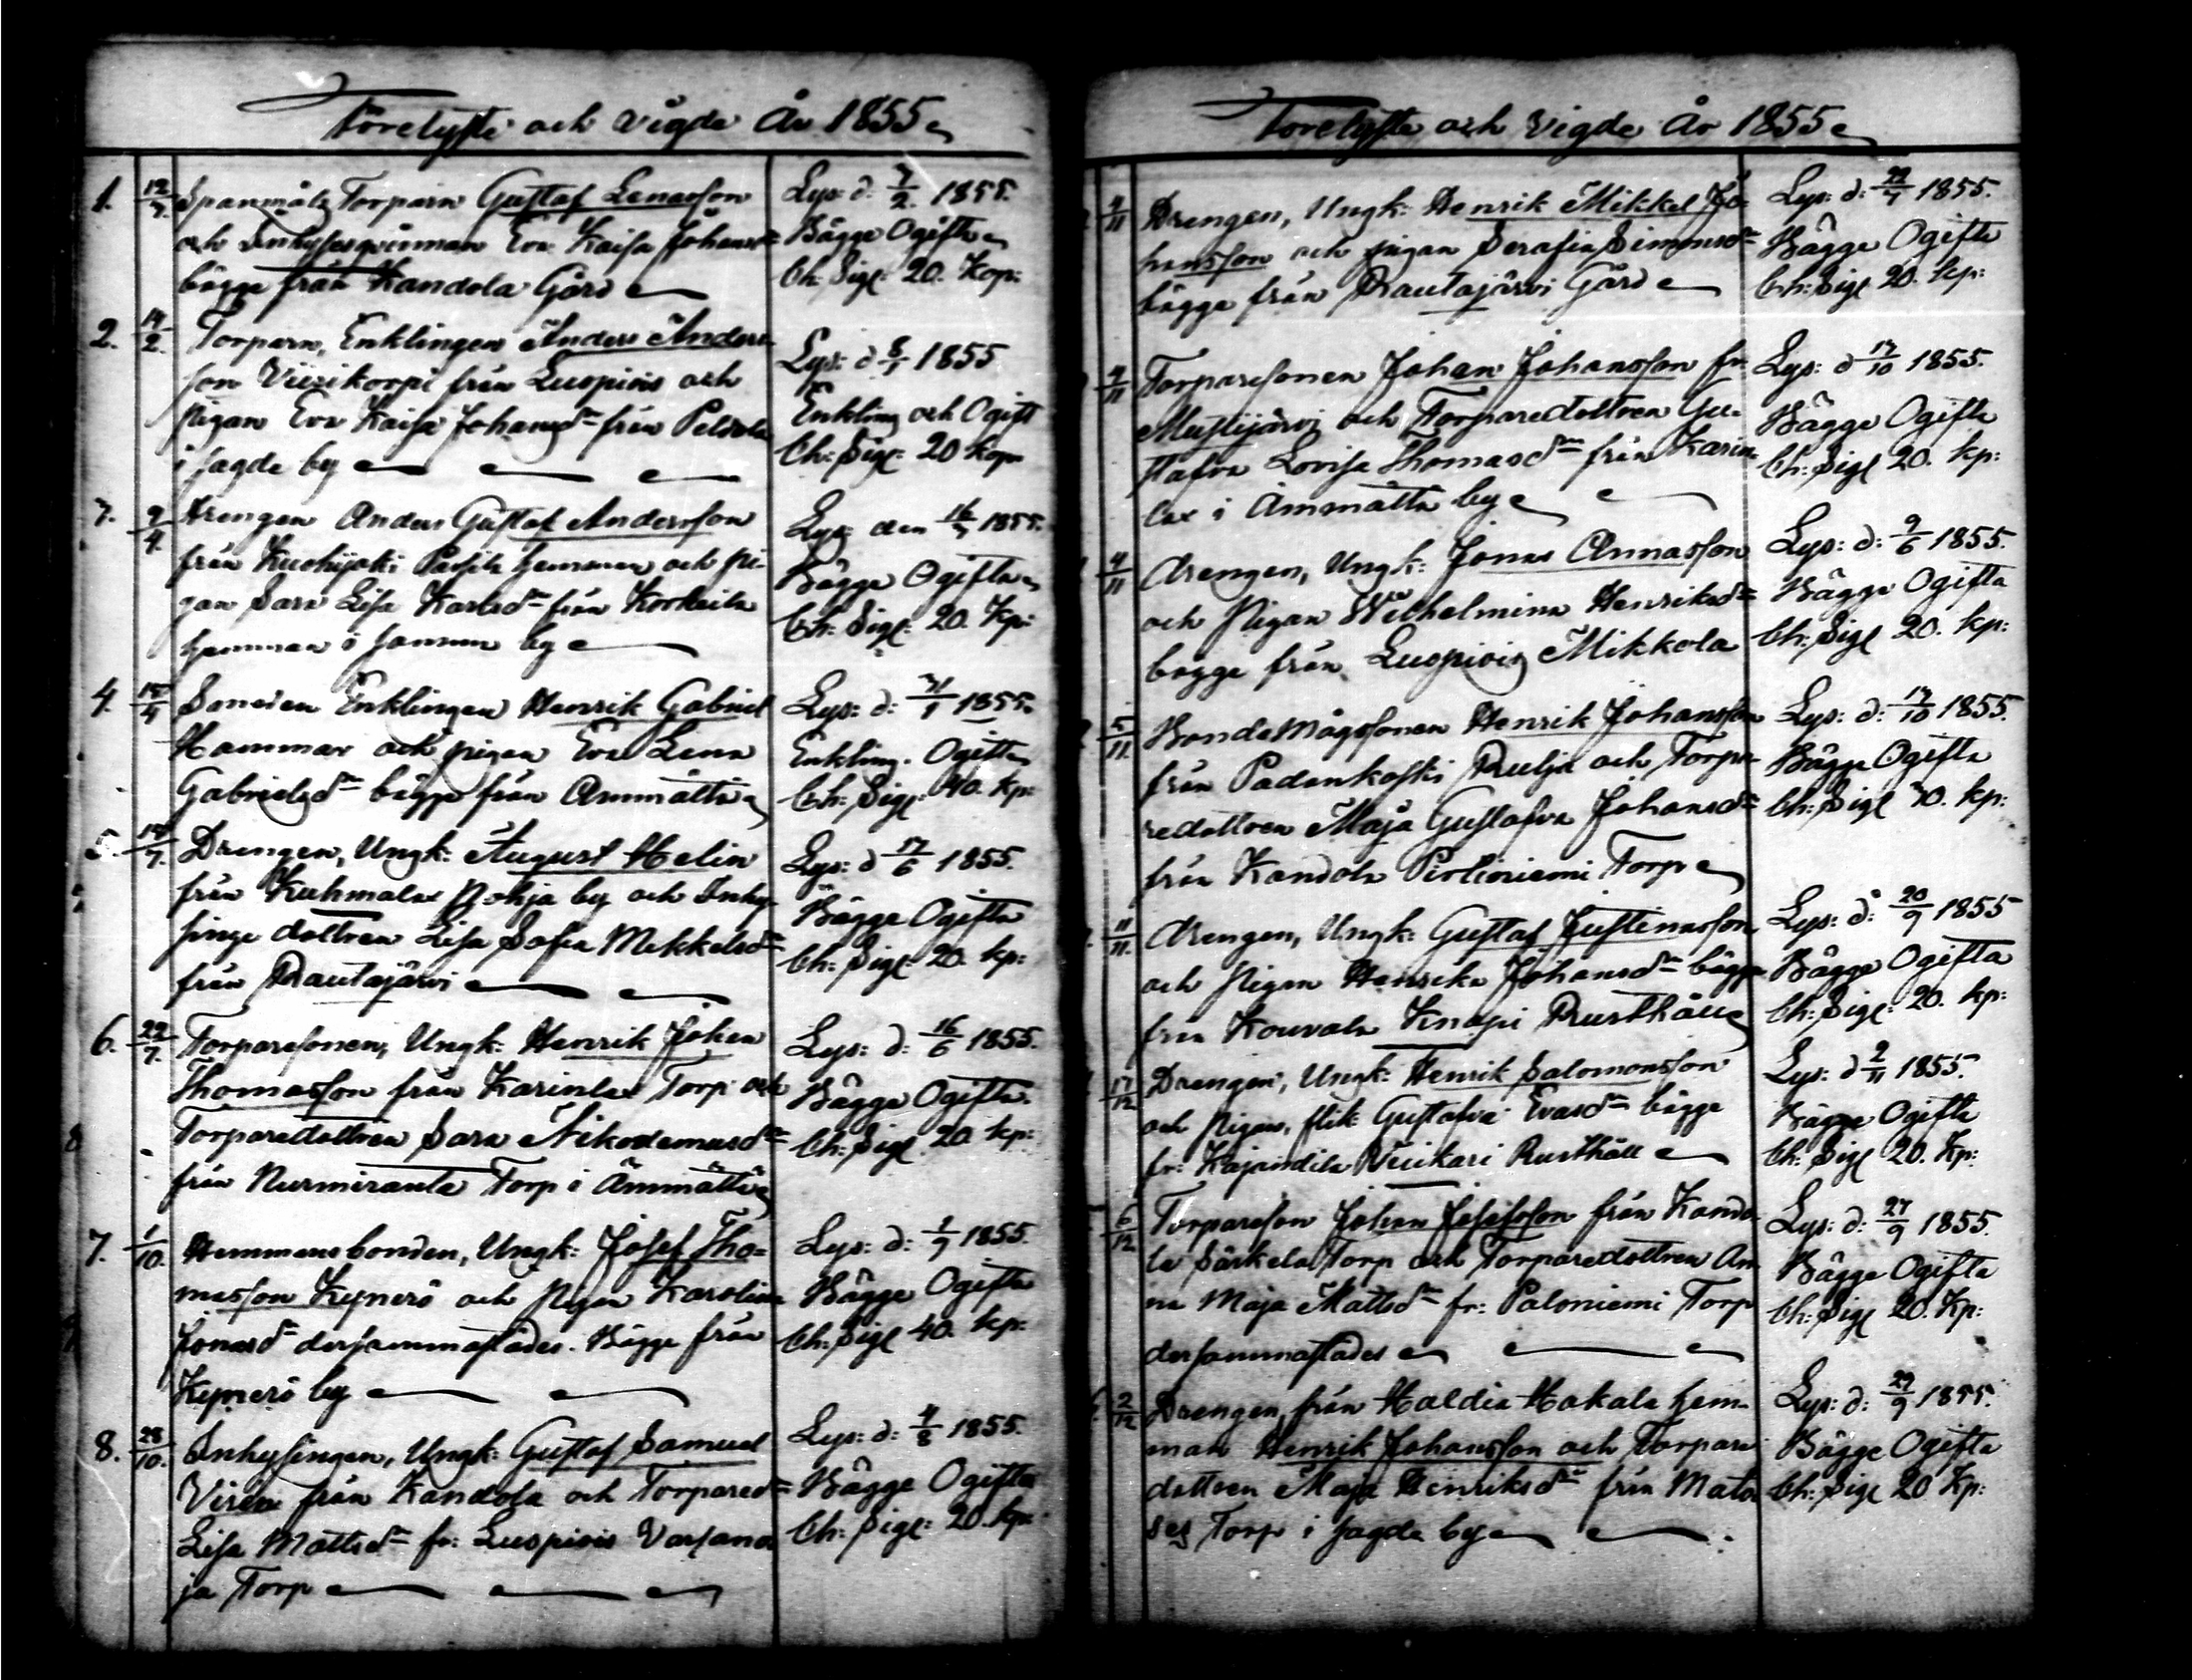 Förelyste och Vigde År 1855
1. 12/3. Spanmåls Torparn Gustaf Lenasson
och Inhysesqvinnan Eva Kaisa Johansdr
bägge från Kandola Gård
Lys: d: 1855.
Bägge Ogifta
Ch: Sigl: 20. Kop:
2. 14/2. Torparn, Enklingen Anders Anders-
son Viirikorpi från Luopiois och
Pigan Eva Kaisa Johansdr från Peldola
i sagde by
Lys: d 8/1 1855
Enkling och Ogift
Ch: Sigl: 20 Kop
3. 9/4. Drengen Anders Gustaf Andersson
från Kuohijoki hemman och pi-
gan Sara Lisa Karlsdr från Korkeila
hemman i by
Lys: den 16/3 1855.
Bägge Ogifta
Ch: Sigl: 20. Kp:
4. 15/4 Enklingen Henrik Gabriel
Hammar och pigan Eva Lena
Gabrielsdr bägge från Ämmättä
Lys: d: 31/1 1855.
Enkling. Ogifta
Ch: Sigl: 40. Kp:
5. 14/7. Drengen, Ungk: August Helin
från Kuhmalax Pohja by och Inhy-
singe dottren Lisa Sofia Mikkelsdr
från Rautajärvi
Lys: d 17/6 1855.
Bägge Ogifta
Ch: Sigl: 20. kp:
6. 22/7. Torparesonen, Ungk: Henrik Johan
Thomasson från Karinlax Torp och
Torparedottren Sara Nikodemusdr
från Nurmiranta Torp i Ämmättä
Lys: d: 16/6 1855.
Bägge Ogifta.
Ch: Sigl 20. kp:
7. 1/10. Hemmansbonden, Ungk: Josef Tho-
masson Kyynerö och Pigan Karolina
Jonasdr dersammastädes. Bägge från
Kyynerö by
Lys: d: 1855.
Bägge Ogifta
Ch: Sigl 40. kp:
8. 28/10. Inhysingen, Ungk: Gustaf Samuel
Viren från Kandola och Torparedr
Lisa Mattsdr fr: Luopiois
ja Torp
Lys: d: 4/8 1855.
Bägge Ogifta
Ch: Sigl: 20. kp:
Förelyste och Vigde År 1855
4/11 Drengen, Ungk: Henrik Mikkel Jo-
hansson och pigan Serafia Simonsdr
bägge från Rautajärvi Gård
Lys: d: 1855.
Bägge Ogifta
Ch: Sigl 20. kp:
4/11 Torparesonen Johan Johansson fr:
Mustijärvi och Torparedottren Gu-
stafva Lovisa Thomasdr från Karin-
lax i Ämmättä by
Lys: d 13/10 1855.
Bägge Ogifta
Ch: Sigl 20. kp:
4/11 Drengen, Ungk: Jonas Annasson
och Pigan Wilhelmina Henriksdr
bägge från Luopiois Mikkola
Lys: d: 9/6 1855.
Bägge Ogifta
Ch: Sigl 20. kp:
5/11. BondeMågssonen Henrik Johansson
från Padankoski Reulja och Torpa-
redottren Maja Gustafva Johansdr
från Kandola Torp
Lys: d: 13/10 1855.
Bägge Ogifta
Ch: Sigl kp:
11/11. Drengen, Ungk: Gustaf Justinasson
och Pigan Henrika Johansdr bägge
från Kouvala Knapi Rusthåll
Lys: d: 20/9 1855
Bägge Ogifta
Ch: Sigl: 20. kp:
17/12 Drengen, Ungk: Henrik Salomonsson
och Pigan, flik: Gustafva Evasdr bägge
fr: Kajandila Rusthåll
Lys: d 2/11 1855.
Bägge Ogifta
Ch: Sigl 20. Kp:
6/12 Torpareson Johan Josefsson från Kando-
la Särkela Torp och Torparedottren An-
na Maja Mattsdr fr: Paloniemi Torp
dersammastädes
Lys: d: 27/9 1855.
Bägge Ogifta
Ch: Sigl 20. Kp:
2/12 Drengen, från Haldia Hakala hem-
man Henrik Johansson och Torpare
dottren Maja Henriksdr från
Torp i sagde by
Lys: d: 29/9 1855.
Bägge Ogifta
Ch: Sigl 20 Kp: